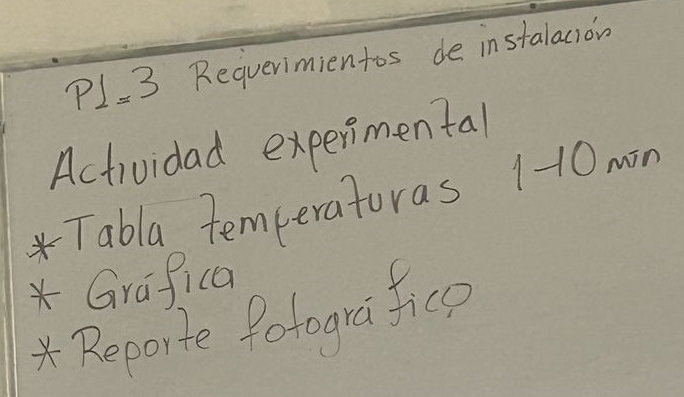 P1=3 Requerimientos de instalación
Actividad experimental
* Tabla temperaturas 1-10 min
* Gráfica
* Reporte fotográfico